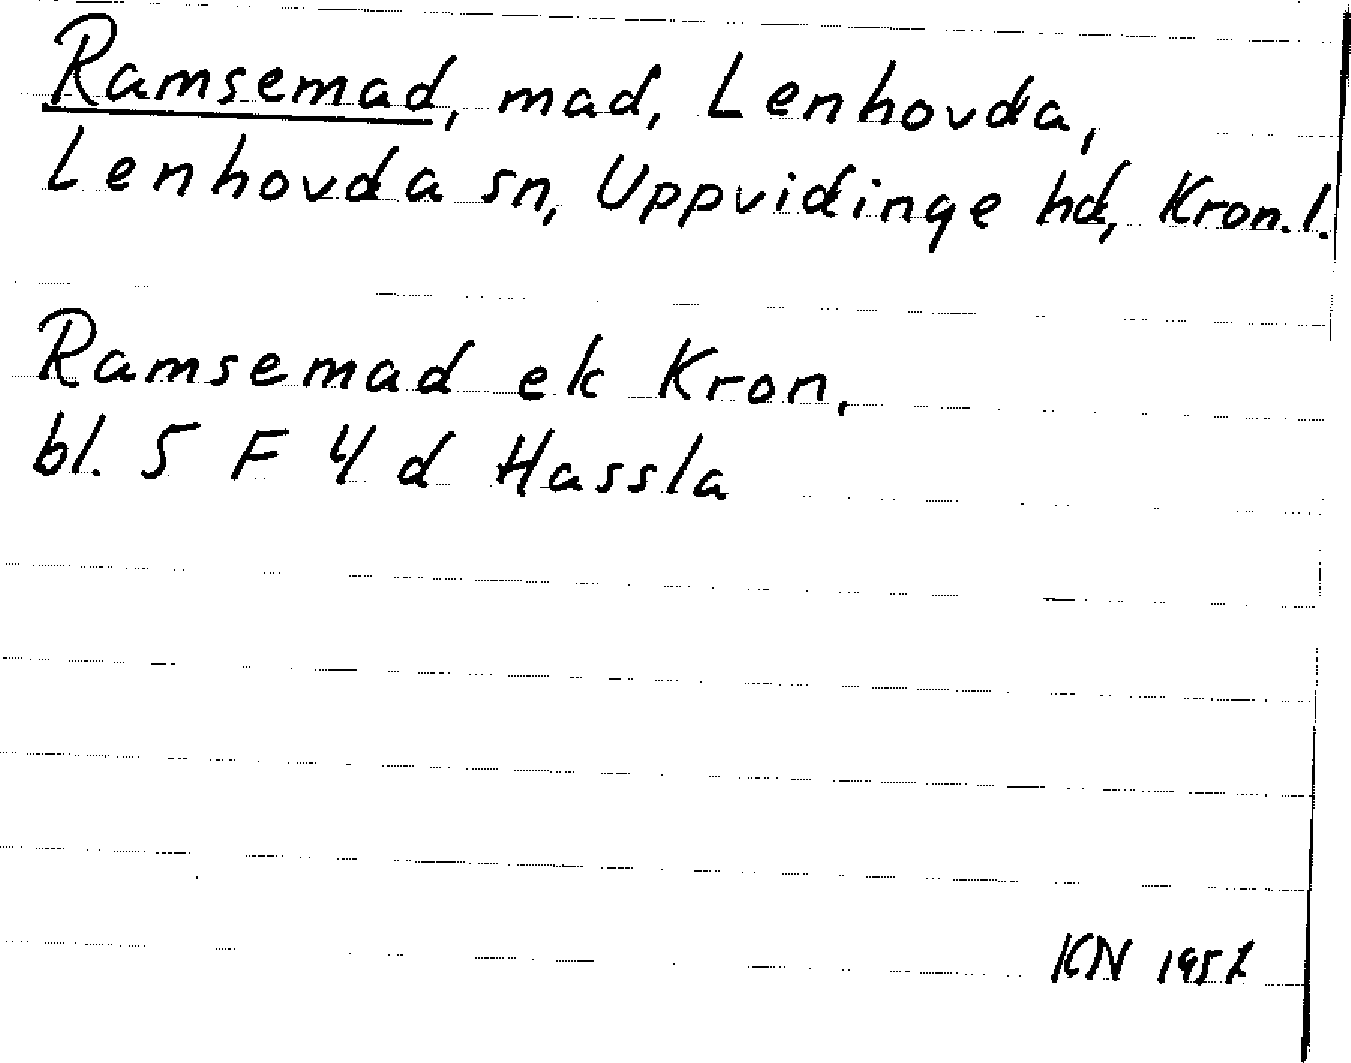 Ramsemad, mad, Lenhovda,
Lenhovda sn, Uppvidinge hd, Kron. l.
Ramsemad ek Kron,
bl. 5 F 4 d Hassla
KN 1952